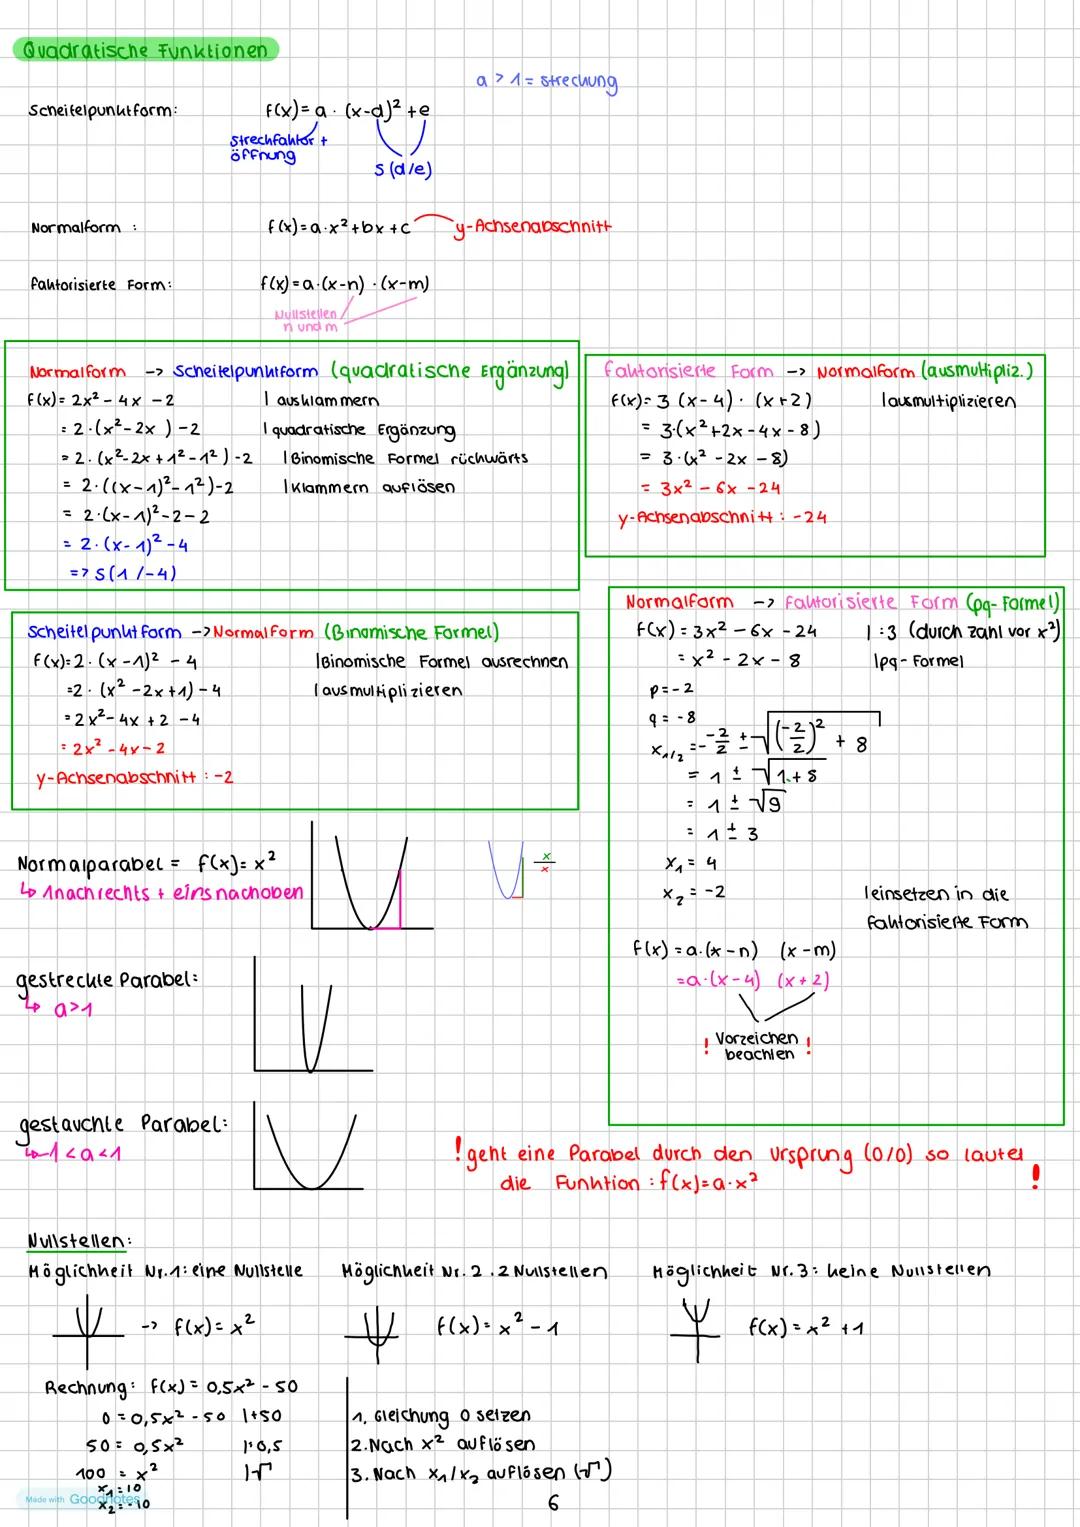 Quadratische Funktionen
a > 1 = streckung
Scheitelpunktform: f(x) = a · (x-d)² + e
Streckfaktor +
öffnung
S (d/e)
Normalform : f(x) = a·x² + bx + c y-Achsenabschnitt
faktorisierte Form: f(x) = a·(x-n) · (x-m)
Nullstellen
n und m
Normalform -> Scheitelpunktform (quadratische Ergänzung)
f(x) = 2x² - 4x - 2 | ausklammern
= 2·(x² - 2x ) - 2 | quadratische Ergänzung
= 2·(x² - 2x + 1² - 1²) - 2 | Binomische Formel rückwärts
= 2·((x-1)² - 1²) - 2 | Klammern auflösen
= 2·(x-1)² - 2 - 2
= 2·(x-1)² - 4
=> S(1/-4)
faktorisierte Form -> Normalform (ausmultipliz.)
f(x) = 3 (x-4) · (x+2) | ausmultiplizieren
= 3·(x² + 2x - 4x - 8)
= 3·(x² - 2x - 8)
= 3x² - 6x - 24
y-Achsenabschnitt : -24
Scheitelpunktform -> Normalform (Binomische Formel)
f(x) = 2·(x-1)² - 4 | Binomische Formel ausrechnen
= 2·(x² - 2x + 1) - 4 | ausmultiplizieren
= 2x² - 4x + 2 - 4
= 2x² - 4x - 2
y-Achsenabschnitt : -2
Normalform -> Faktorisierte Form (pq-Formel)
f(x) = 3x² - 6x - 24 | :3 (durch zahl vor x²)
= x² - 2x - 8 | pq-Formel
p = -2
q = -8
x₁/₂ = - -2/2 ± √((-2/2)² + 8)
= 1 ± √(1 + 8)
= 1 ± √9
= 1 ± 3
x₁ = 4
x₂ = -2 | einsetzen in die
faktorisierte Form
f(x) = a·(x-n) (x-m)
= a·(x-4) (x+2)
! Vorzeichen !
beachten
Normalparabel = f(x) = x²
↳ 1 nach rechts + eins nach oben
x
x
gestreckte Parabel:
↳ a>1
gestauchte Parabel:
↳ -1 < a < 1
! geht eine Parabel durch den Ursprung (0/0) so lautet
die Funktion : f(x) = a·x² !
Nullstellen:
Möglichkeit Nr. 1: eine Nullstelle Möglichkeit Nr. 2. 2 Nullstellen Möglichkeit Nr. 3: keine Nullstellen
-> f(x) = x² f(x) = x² - 1 f(x) = x² + 1
Rechnung: f(x) = 0,5x² - 50
0 = 0,5x² - 50 | +50
50 = 0,5x² | : 0,5
100 = x² | √
x₁ = 10
x₂ = -10
1. Gleichung 0 setzen
2. Nach x² auflösen
3. Nach x₁/x₂ auflösen (√)
Made with Goodnotes
6